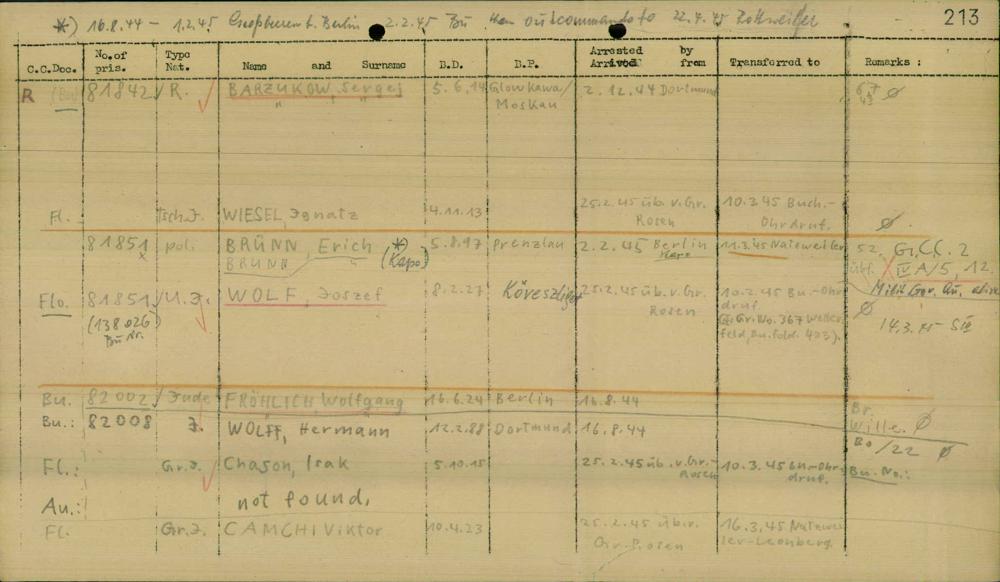 *) 16.8.44 - 1.2.45 Berlin 2.2.45 Bu 22.4.45 213
C.C.Doc. No. of pris. Type Nat. Name and Surname B.D. B.P. Arrested by Arrived from Transferred to Remarks :
R 81842 R. BARZUKOW, Sergej 5.6.14 Glowkawa/ 2.12.44 Dortmund
" " Moskau
Fl. Tsch.J. WIESEL, Ignatz 4.11.13 25.2.45 üb. v. Gr. 10.3.45 Buch-
Rosen Ohrdruf.
81851 pol. BRÜNN, Erich (*) 5.8.97 Prenzlau 2.2.45 Berlin 11.3.45 Natzweiler 52. G.C.C. 2
x BRUNN " (Kapo) IV A/5, 12.
Flo. 81851 U.J. WOLF, Joszef 8.2.27 25.2.45 üb. v. Gr. 10.2.45 Bu.-Ohr- Milit Gov. Qu. alive
(138026) Rosen druf
Bu Nr. Gr. No. 367 14.3.45
Bu. 82002 Jude FRÖHLICH, Wolfgang 16.6.24 Berlin 16.8.44 Br.
Bu.: 82008 J. WOLFF, Hermann 12.2.88 Dortmund 16.8.44 Wille. Ø
Bo/22 Ø
Fl.: Gr.J. Chason, Isak 5.10.15 25.2.45 üb. v. Gr.- 10.3.45 Bu-Ohr- Bu.-No.:
Rosen druf.
Au.: not found.
Fl. Gr.J. CAMCHI Viktor 10.4.23 25.2.45 üb. v. 16.3.45 Natzwei
Gr-Rosen ler-Leonberg